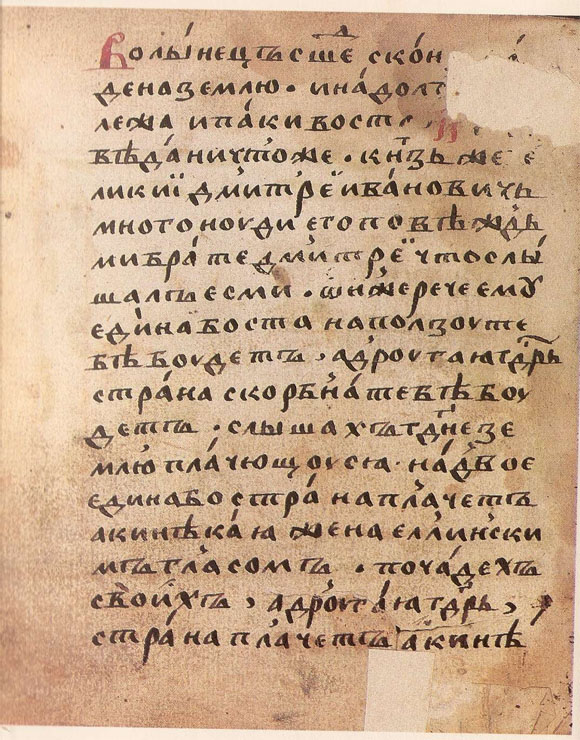 Волынецъ сше скон
де на землю · и на долг
лежа и пакы воста
вѣда ничтоже · кнзь же
ликиї дмитреї ивановичь
много ноуди его повѣждь
ми брате дмитреї что слы
шалъ еси · ѿнже рече емꙋ
едина бо ста на ползоу те
бѣ боудетъ · а дроугаꙗ гдрь
страна скорбна тебѣ боу
детъ · слышахъ гдне зе
млю плачющоусѧ · на двое
едина бо страна плачетъ
аки нѣкаꙗ жена еллински
мъ гласомъ · по чадехъ
своихъ · а дроугаꙗ гдрь
страна плачетъ аки нѣ